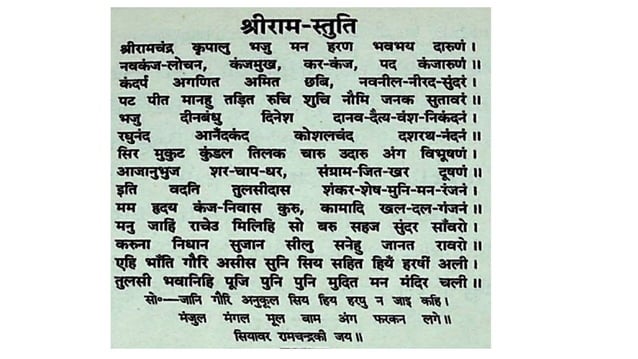 श्रीराम-स्तुति
श्रीरामचंद्र कृपालु भजु मन हरण भवभय दारुणं ।
नवकंज-लोचन, कंजमुख, कर-कंज, पद कंजारुणं ॥
कंदर्प अगणित अमित छबि, नवनील-नीरद-सुंदरं ।
पट पीत मानहु तड़ित रुचि शुचि नौमि जनक सुतावरं ॥
भजु दीनबंधु दिनेश दानव-दैत्य-वंश-निकंदनं ।
रघुनंद आनँदकंद कोशलचंद दशरथ-नंदनं ॥
सिर मुकुट कुंडल तिलक चारु उदारु अंग विभूषणं ।
आजानुभुज शर-चाप-धर, संग्राम-जित-खर दूषणं ॥
इति वदति तुलसीदास शंकर-शेष-मुनि-मन-रंजनं ।
मम हृदय कंज-निवास कुरु, कामादि खल-दल-गंजनं ॥
मनु जाहिं राचेउ मिलिहि सो बरु सहज सुंदर साँवरो ।
करुना निधान सुजान सीलु सनेहु जानत रावरो ॥
एहि भाँति गौरि असीस सुनि सिय सहित हियँ हरषीं अली ।
तुलसी भवानिहि पूजि पुनि पुनि मुदित मन मंदिर चली ॥
सो०—जानि गौरि अनुकूल सिय हिय हरषु न जाइ कहि ।
मंजुल मंगल मूल बाम अंग फरकन लगे ॥
सियावर रामचन्द्रकी जय ॥